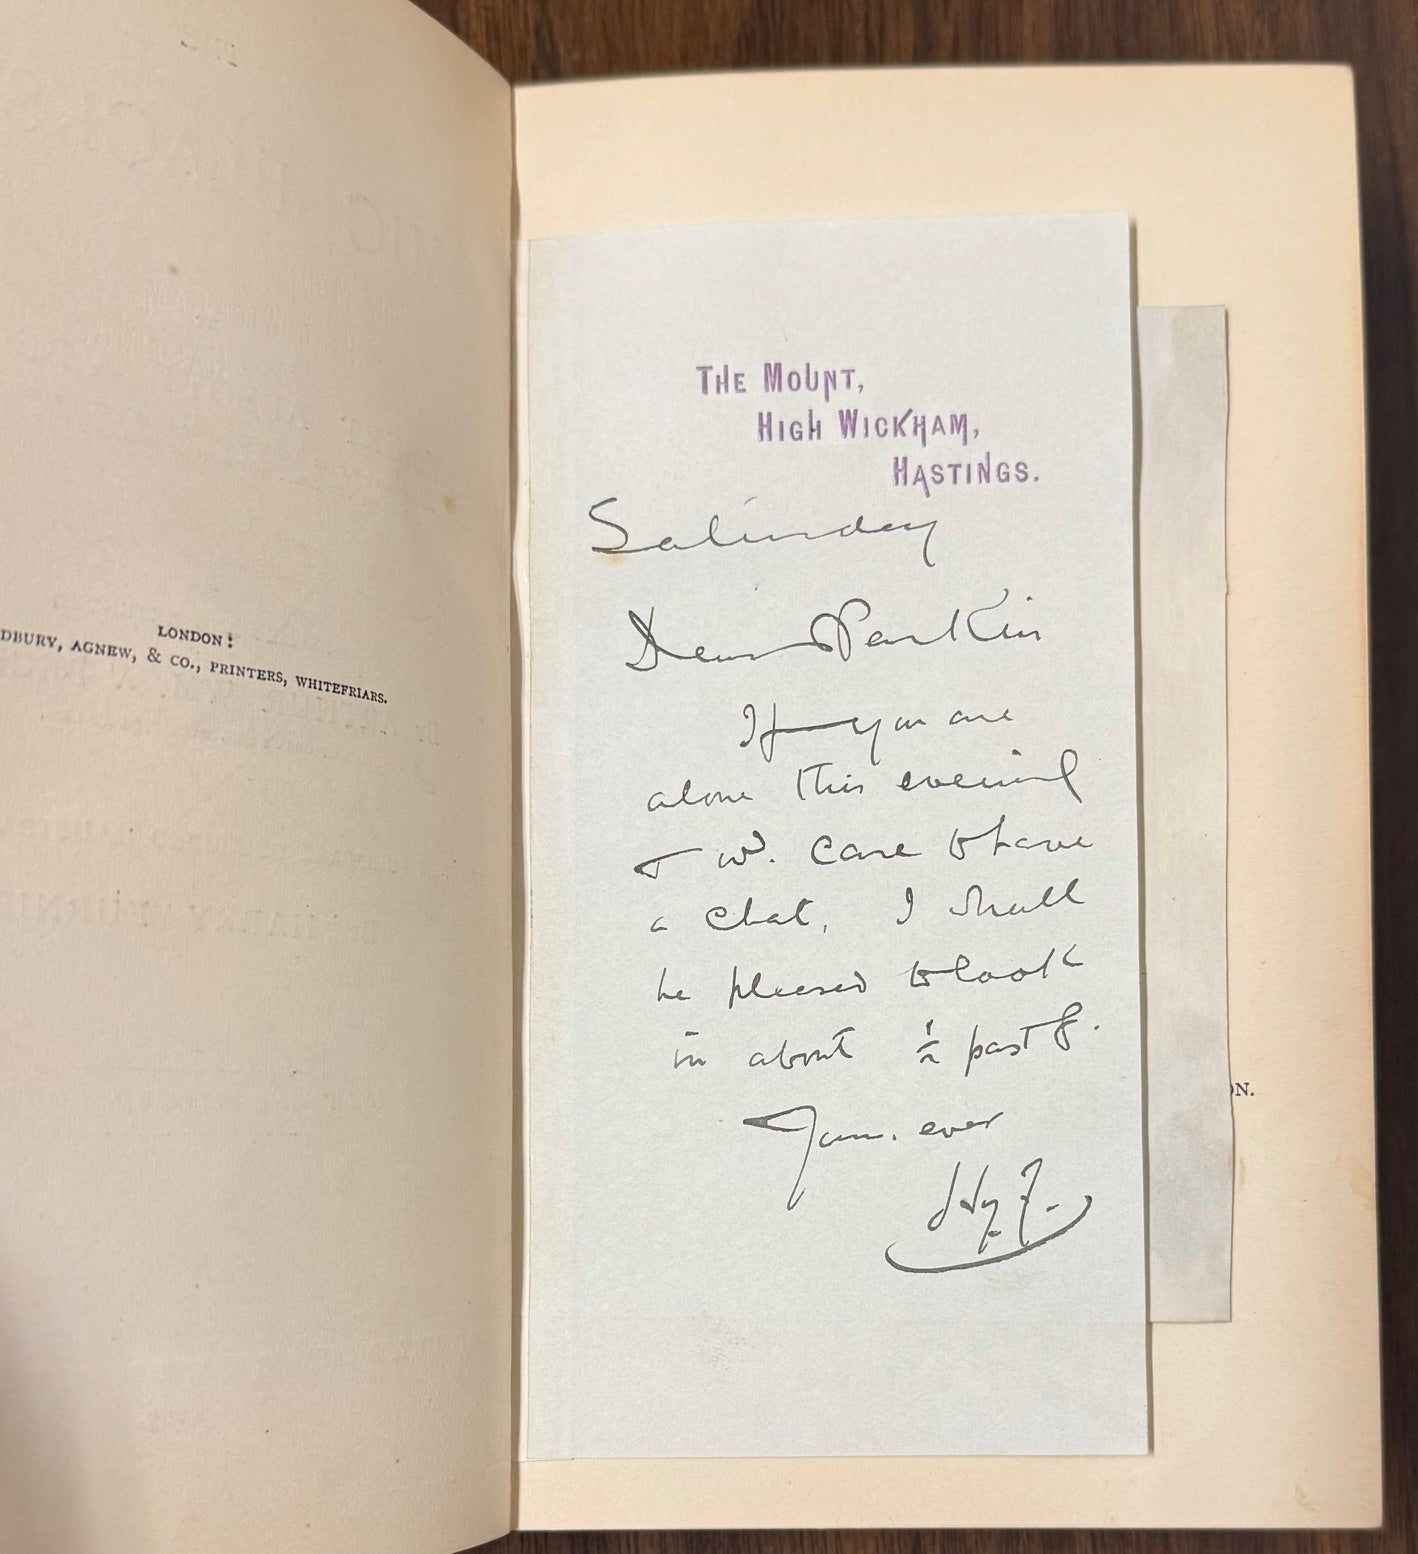 LONDON:
DBURY, AGNEW, & CO., PRINTERS, WHITEFRIARS.
THE MOUNT,
HIGH WICKHAM,
HASTINGS.
Saturday
Dear Parkin
If you are
alone this evening
& wd. care to have
a chat, I shall
be pleased to look
in about ½ past 8.
Yours ever
Hy F.
ON.